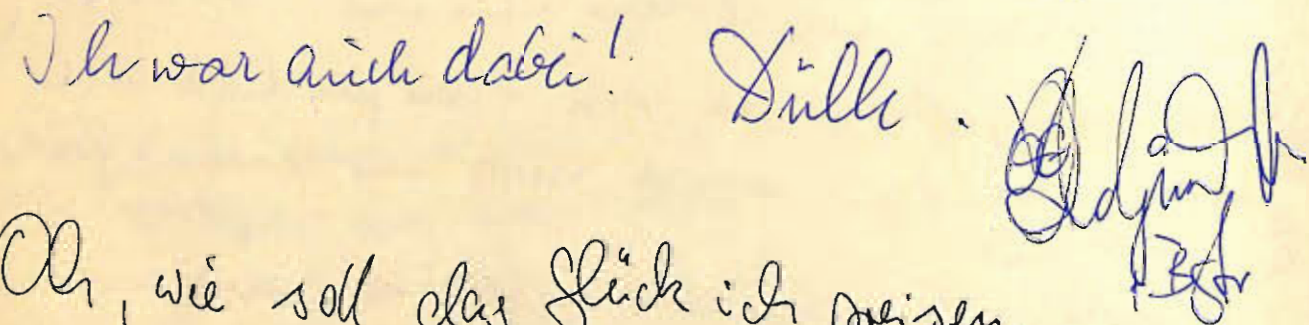 Ich war auch dabei! Dülk.
Oh, wie soll das Glück ich preisen